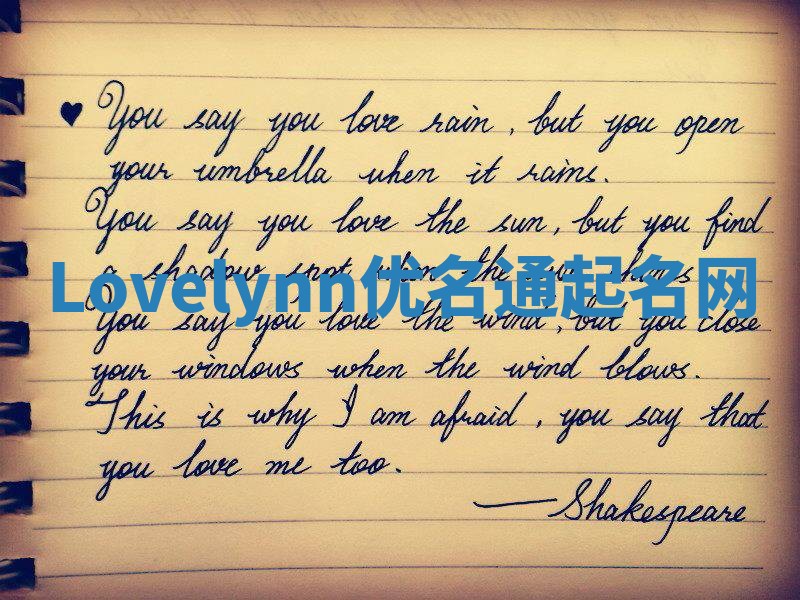 ♥ You say you love rain, but you open
your umbrella when it rains.
You say you love the sun, but you find
a shadow spot when the sun shines
Lovelynn优名通起名网
You say you love the wind, but you close
your windows when the wind blows.
This is why I am afraid, you say that
you love me too.
—Shakespeare